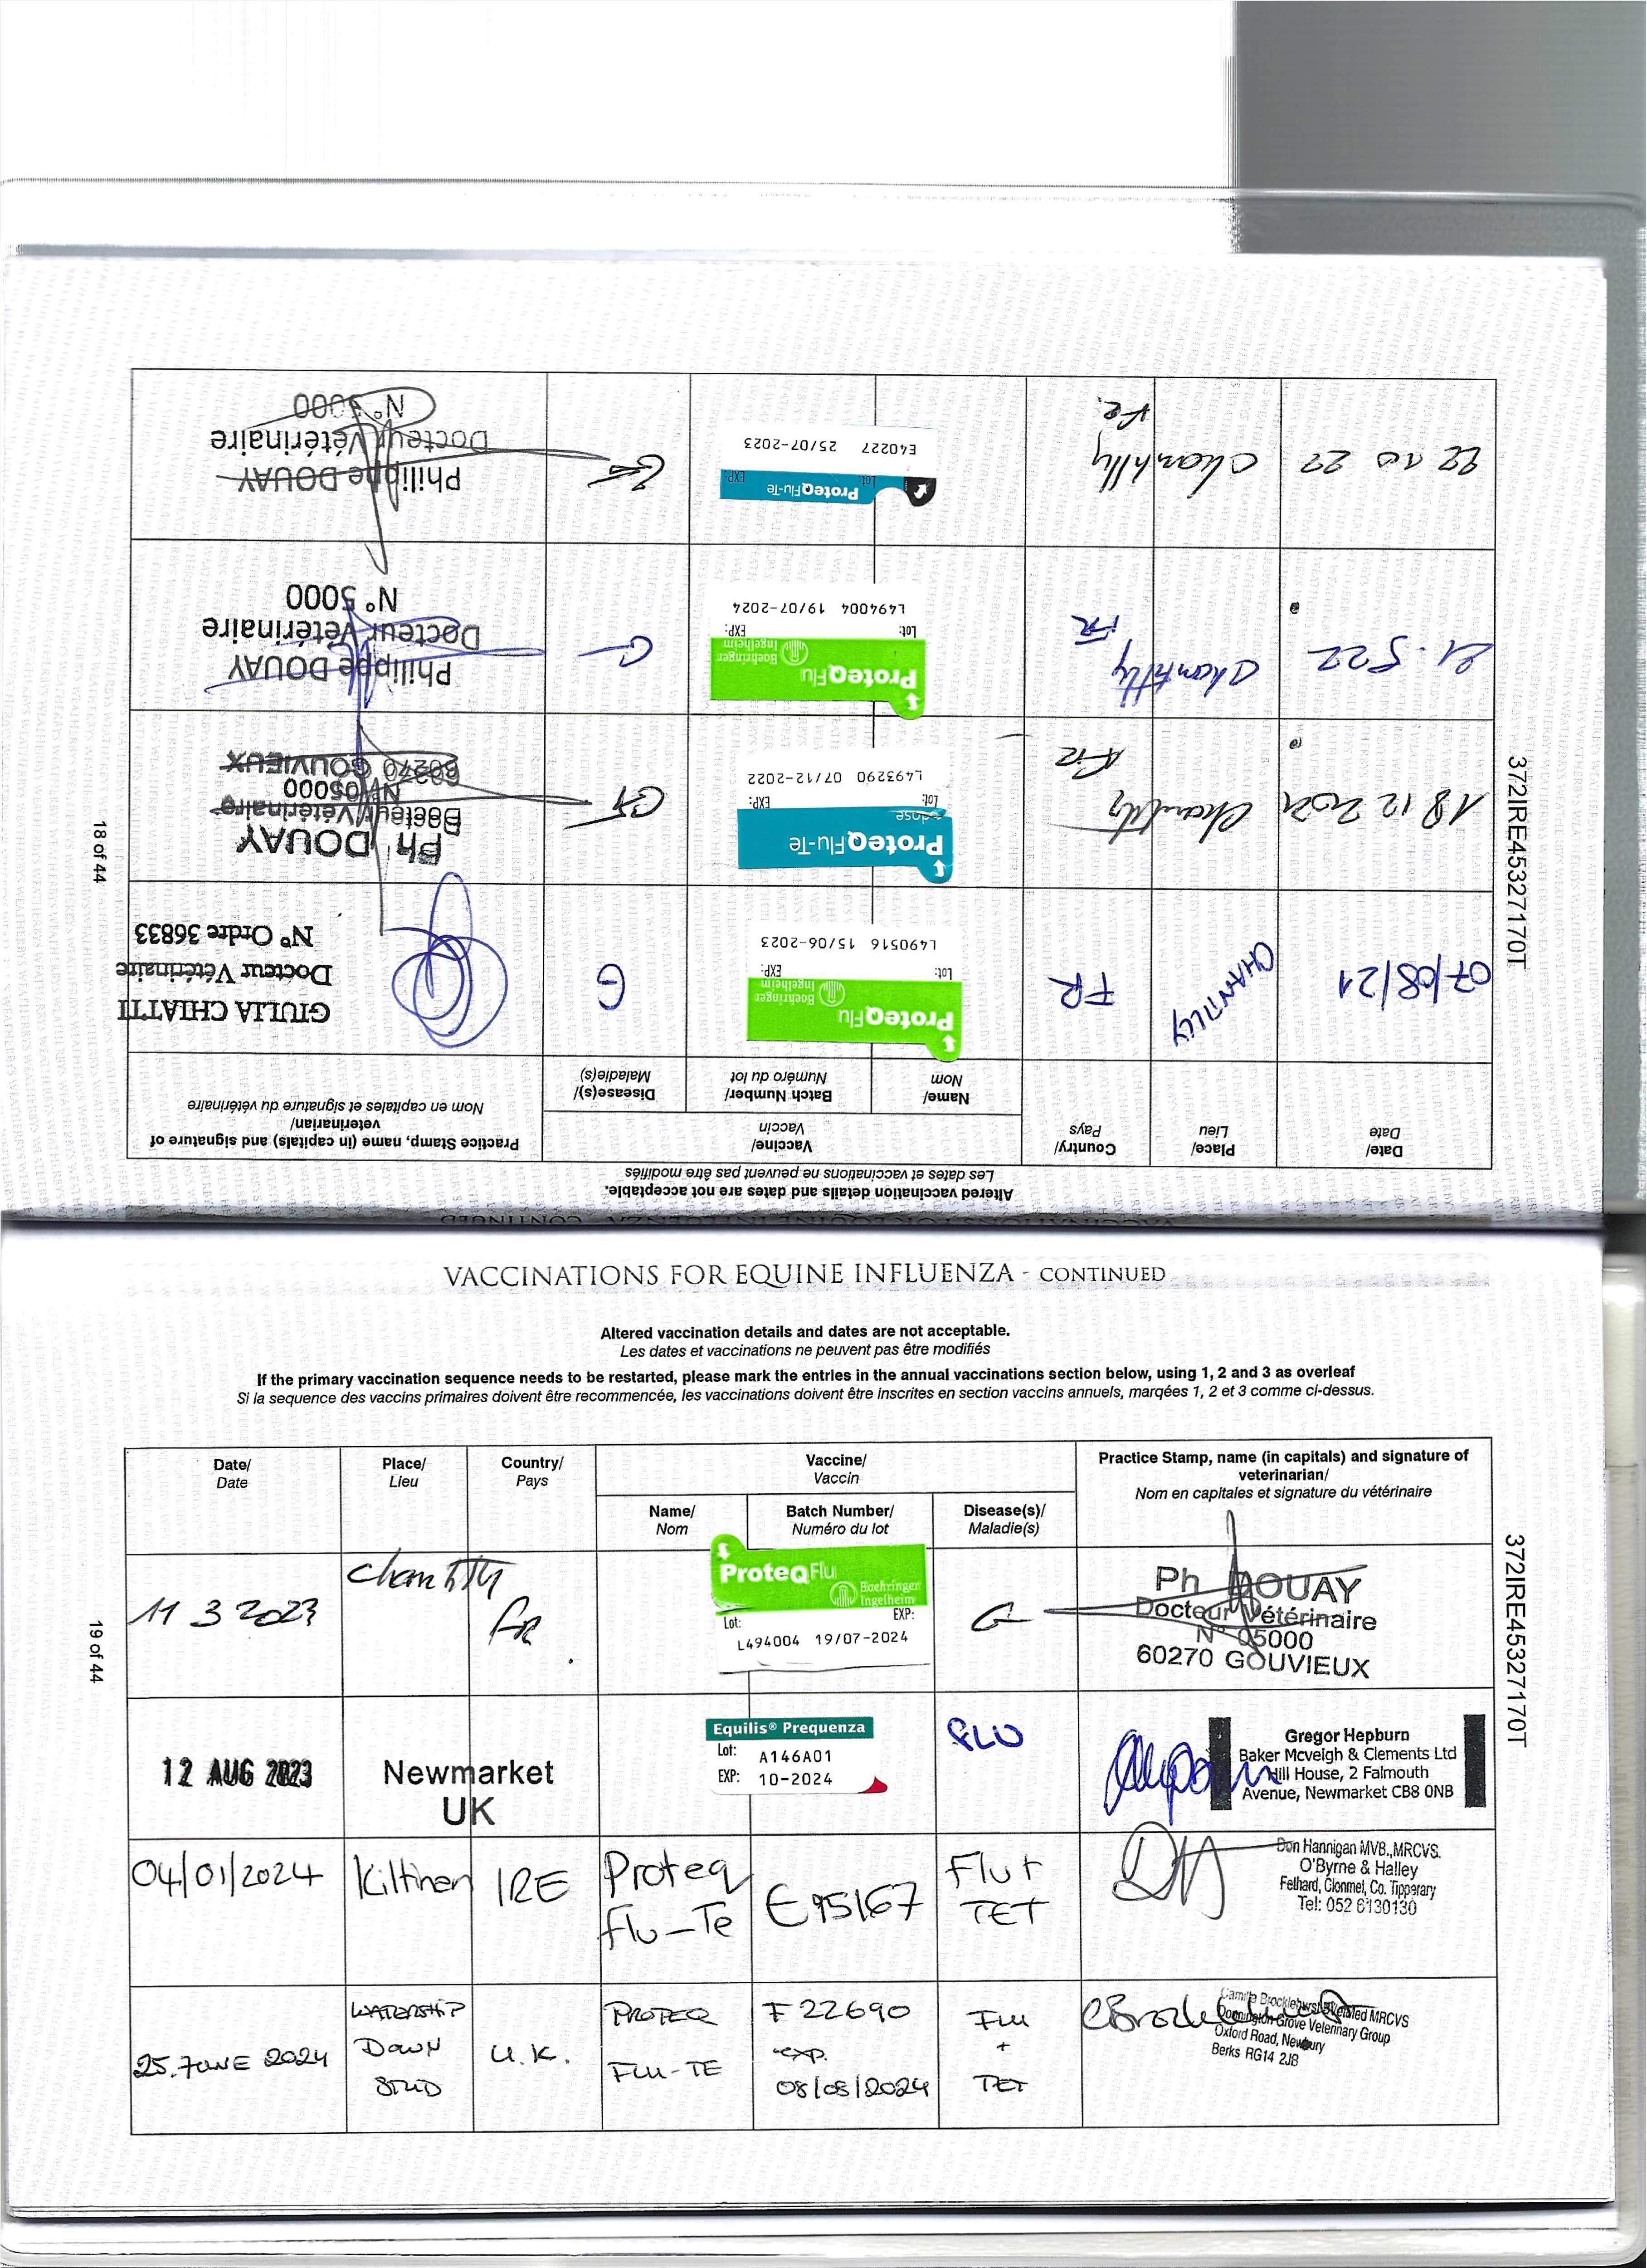 Altered vaccination details and dates are not acceptable.
Les dates et vaccinations ne peuvent pas être modifiés
Date/
Date
Place/
Lieu
Country/
Pays
Vaccine/
Vaccin
Name/
Nom
Batch Number/
Numéro du lot
Disease(s)/
Maladie(s)
Practice Stamp, name (in capitals) and signature of
veterinarian/
Nom en capitales et signature du vétérinaire
07/08/21
CHANTILLY
FR
ProteqFlu
Boehringer
Ingelheim
Lot: EXP:
L490516 15/06-2023
G
GIULIA CHIATTI
Docteur Vétérinaire
N° Ordre 36833
18 12 2021
Chantilly
Fr
ProteqFlu-Te
dose
Lot: EXP:
L493290 07/12-2022
GT
Ph DOUAY
Docteur Vétérinaire
N° 05000
60270 GOUVIEUX
21.5 22
Chantilly
FR
ProteqFlu
Boehringer
Ingelheim
Lot: EXP:
L494004 19/07-2024
G
Philippe DOUAY
Docteur Vétérinaire
N° 5000
22 10 22
Chantilly
Fr.
ProteqFlu-Te
Lot: EXP:
E40227 25/07-2023
GT
Philippe DOUAY
Docteur Vétérinaire
N° 5000
18 of 44
372IRE45327170T
VACCINATIONS FOR EQUINE INFLUENZA - CONTINUED
Altered vaccination details and dates are not acceptable.
Les dates et vaccinations ne peuvent pas être modifiés
If the primary vaccination sequence needs to be restarted, please mark the entries in the annual vaccinations section below, using 1, 2 and 3 as overleaf
Si la sequence des vaccins primaires doivent être recommencée, les vaccinations doivent être inscrites en section vaccins annuels, marqées 1, 2 et 3 comme ci-dessus.
Date/
Date
Place/
Lieu
Country/
Pays
Vaccine/
Vaccin
Name/
Nom
Batch Number/
Numéro du lot
Disease(s)/
Maladie(s)
Practice Stamp, name (in capitals) and signature of
veterinarian/
Nom en capitales et signature du vétérinaire
11 3 2023
Chantilly
FR
ProteqFlu
Boehringer
Ingelheim
Lot: EXP:
L494004 19/07-2024
G
Ph DOUAY
Docteur Vétérinaire
N° 05000
60270 GOUVIEUX
12 AUG 2023
Newmarket
UK
Equilis® Prequenza
Lot: A146A01
EXP: 10-2024
FLU
Gregor Hepburn
Baker Mcveigh & Clements Ltd
Hill House, 2 Falmouth
Avenue, Newmarket CB8 0NB
04/01/2024
Kiltinan
IRE
Proteq
Flu-Te
E95167
Flu +
TET
Don Hannigan MVB.,MRCVS.
O'Byrne & Halley
Felhard, Clonmel, Co. Tipperary
Tel: 052 6130130
25. JUNE 2024
WATERSHIP
DOWN
STUD
U.K.
PROTEQ
FLU-TE
F22690
exp.
08/08/2024
FLU
+
TET
Camilla Brocklehurst BVetMed MRCVS
Donnington Grove Veterinary Group
Oxford Road, Newbury
Berks RG14 2JB
19 of 44
372IRE45327170T